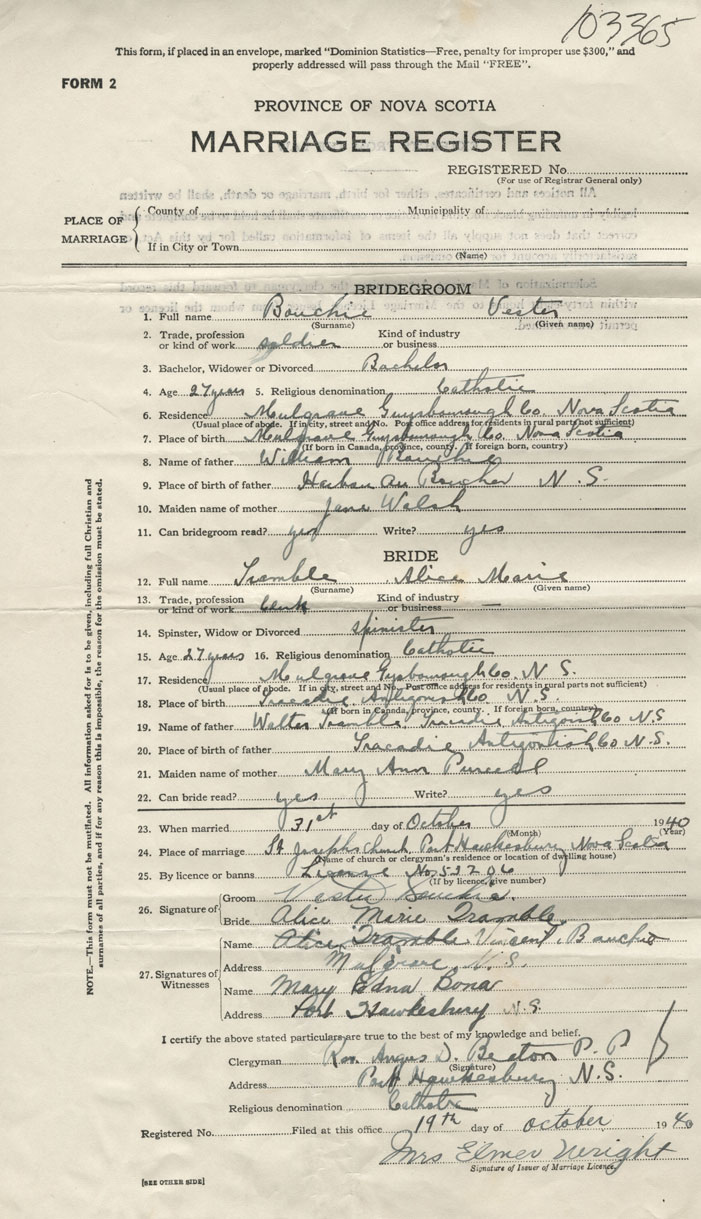 103365
This form, if placed in an envelope, marked "Dominion Statistics—Free, penalty for improper use $300," and
properly addressed will pass through the Mail "FREE".
FORM 2
PROVINCE OF NOVA SCOTIA
MARRIAGE REGISTER
REGISTERED No.
(For use of Registrar General only)
PLACE OF MARRIAGE
County of Municipality of
If in City or Town
(Name)
BRIDEGROOM
1. Full name Bouchie Vester
(Surname) (Given name)
2. Trade, profession or kind of work soldier Kind of industry or business
3. Bachelor, Widower or Divorced Bachelor
4. Age 27 years 5. Religious denomination Catholic
6. Residence Mulgrave Guysborough Co. Nova Scotia
(Usual place of abode. If in city, street and No. Post office address for residents in rural parts not sufficient)
7. Place of birth Mulgrave Guysborough Co. Nova Scotia
(If born in Canada, province, county. If foreign born, country)
8. Name of father William Bouchie
9. Place of birth of father Harbour Au Boucher N.S.
10. Maiden name of mother Jane Walsh
11. Can bridegroom read? yes Write? yes
BRIDE
12. Full name Tramble Alice Marie
(Surname) (Given name)
13. Trade, profession or kind of work Clerk Kind of industry or business —
14. Spinster, Widow or Divorced spinister
15. Age 27 years 16. Religious denomination Catholic
17. Residence Mulgrave Guysborough Co. N.S.
(Usual place of abode. If in city, street and No. Post office address for residents in rural parts not sufficient)
18. Place of birth Tracadie Antigonish Co N.S.
(If born in Canada, province, county. If foreign born, country)
19. Name of father Walter Tramble, Tracadie Antigonish Co N.S
20. Place of birth of father Tracadie Antigonish Co N.S.
21. Maiden name of mother Mary Ann Purcell
22. Can bride read? yes Write? yes
23. When married 31st day of October 1940
(Month) (Year)
24. Place of marriage St Josephs Church, Port Hawkesbury Nova Scotia
(Name of church or clergyman's residence or location of dwelling house)
25. By licence or banns License No. 53206
(If by licence, give number)
26. Signature of
Groom Vester Bouchie.
Bride Alice Marie Tramble.
27. Signatures of Witnesses
Name Alice Tramble Vincent Bouchie
Address Mulgrave N.S.
Name Mary Edna Bona
Address Port Hawkesbury N.S.
I certify the above stated particulars are true to the best of my knowledge and belief.
Clergyman Rev. Angus D. Beaton P.P
(Signature)
Address Port Hawkesbury N.S.
Religious denomination Catholic
Registered No. Filed at this office 19th day of october 1940
Mrs Elmer Wright
Signature of Issuer of Marriage Licence
[SEE OTHER SIDE]
NOTE.—This form must not be mutilated. All information asked for is to be given, including full Christian and
surnames of all parties, and if for any reason this is impossible, the reason for the omission must be stated.